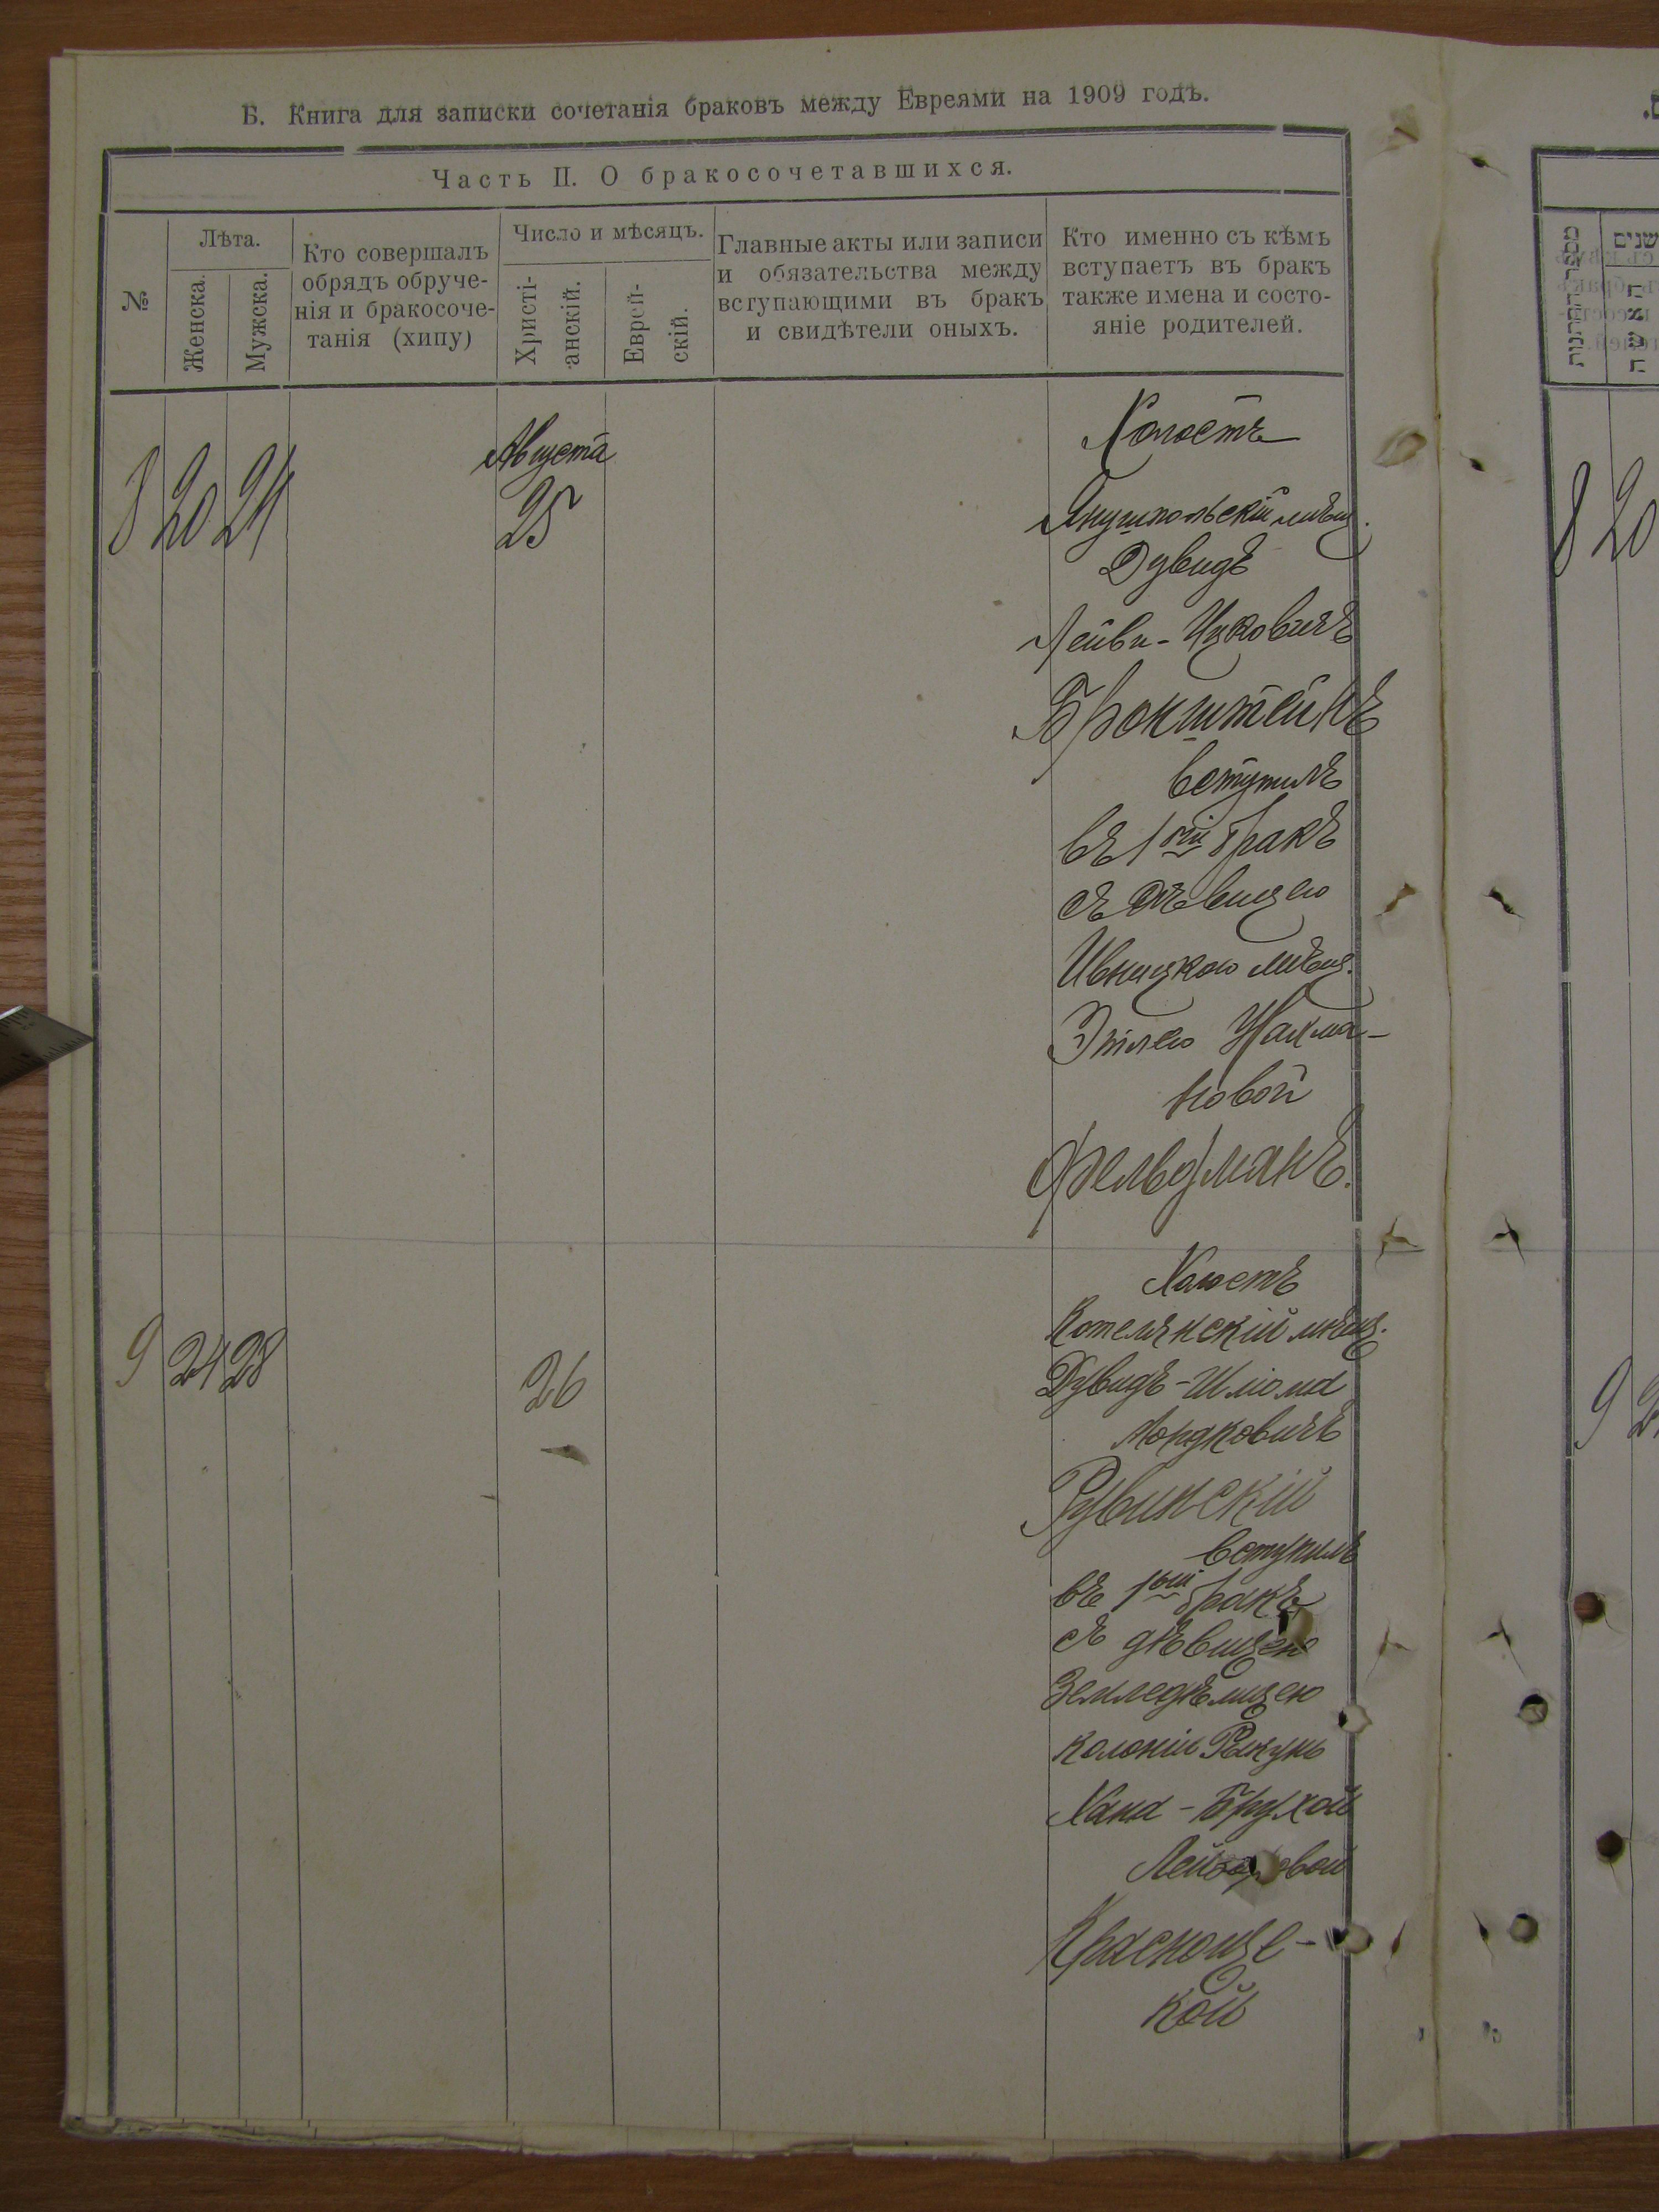 Б. Книга для записки сочетанія браковъ между Евреями на 1909 годъ.
Часть II. О бракосочетавшихся.
№
Лѣта.
Женска.
Мужска.
Кто совершалъ
обрядъ обруче-
нія и бракосоче-
танія (хипу)
Число и мѣсяцъ.
Христі-
анскій.
Еврей-
скій.
Главные акты или записи
и обязательства между
вступающими въ бракъ
и свидѣтели оныхъ.
Кто именно съ кѣмъ
вступаетъ въ бракъ
также имена и состо-
яніе родителей.
8 20 24
Августа
25
Холостъ
Янушпольскій мѣщ.
Дувидъ
Лейви-Ицковичъ
Бронштейнъ
вступилъ
въ 1ый бракъ
съ дѣвицею
Ивницкою мѣщ.
Этлею Нахма-
новой
Фельдманъ.
9 24 28
26
Холостъ
Котелянскій мѣщ.
Дувидъ-Шлома
Мордковичъ
Рувинскій
вступилъ
въ 1ый бракъ
съ дѣвицею
Земледѣлицею
колоніи
Хана-Брухой
Лейзоровой
Красноще-
кой
מספר החתונות
שנים
האשה
8 20
9